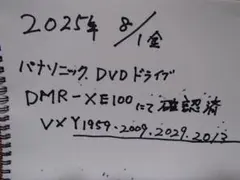 2025年 8/1金
パナソニック DVDドライブ
DMR-XE100にて確認済
VXY1959.2009.2029.2013